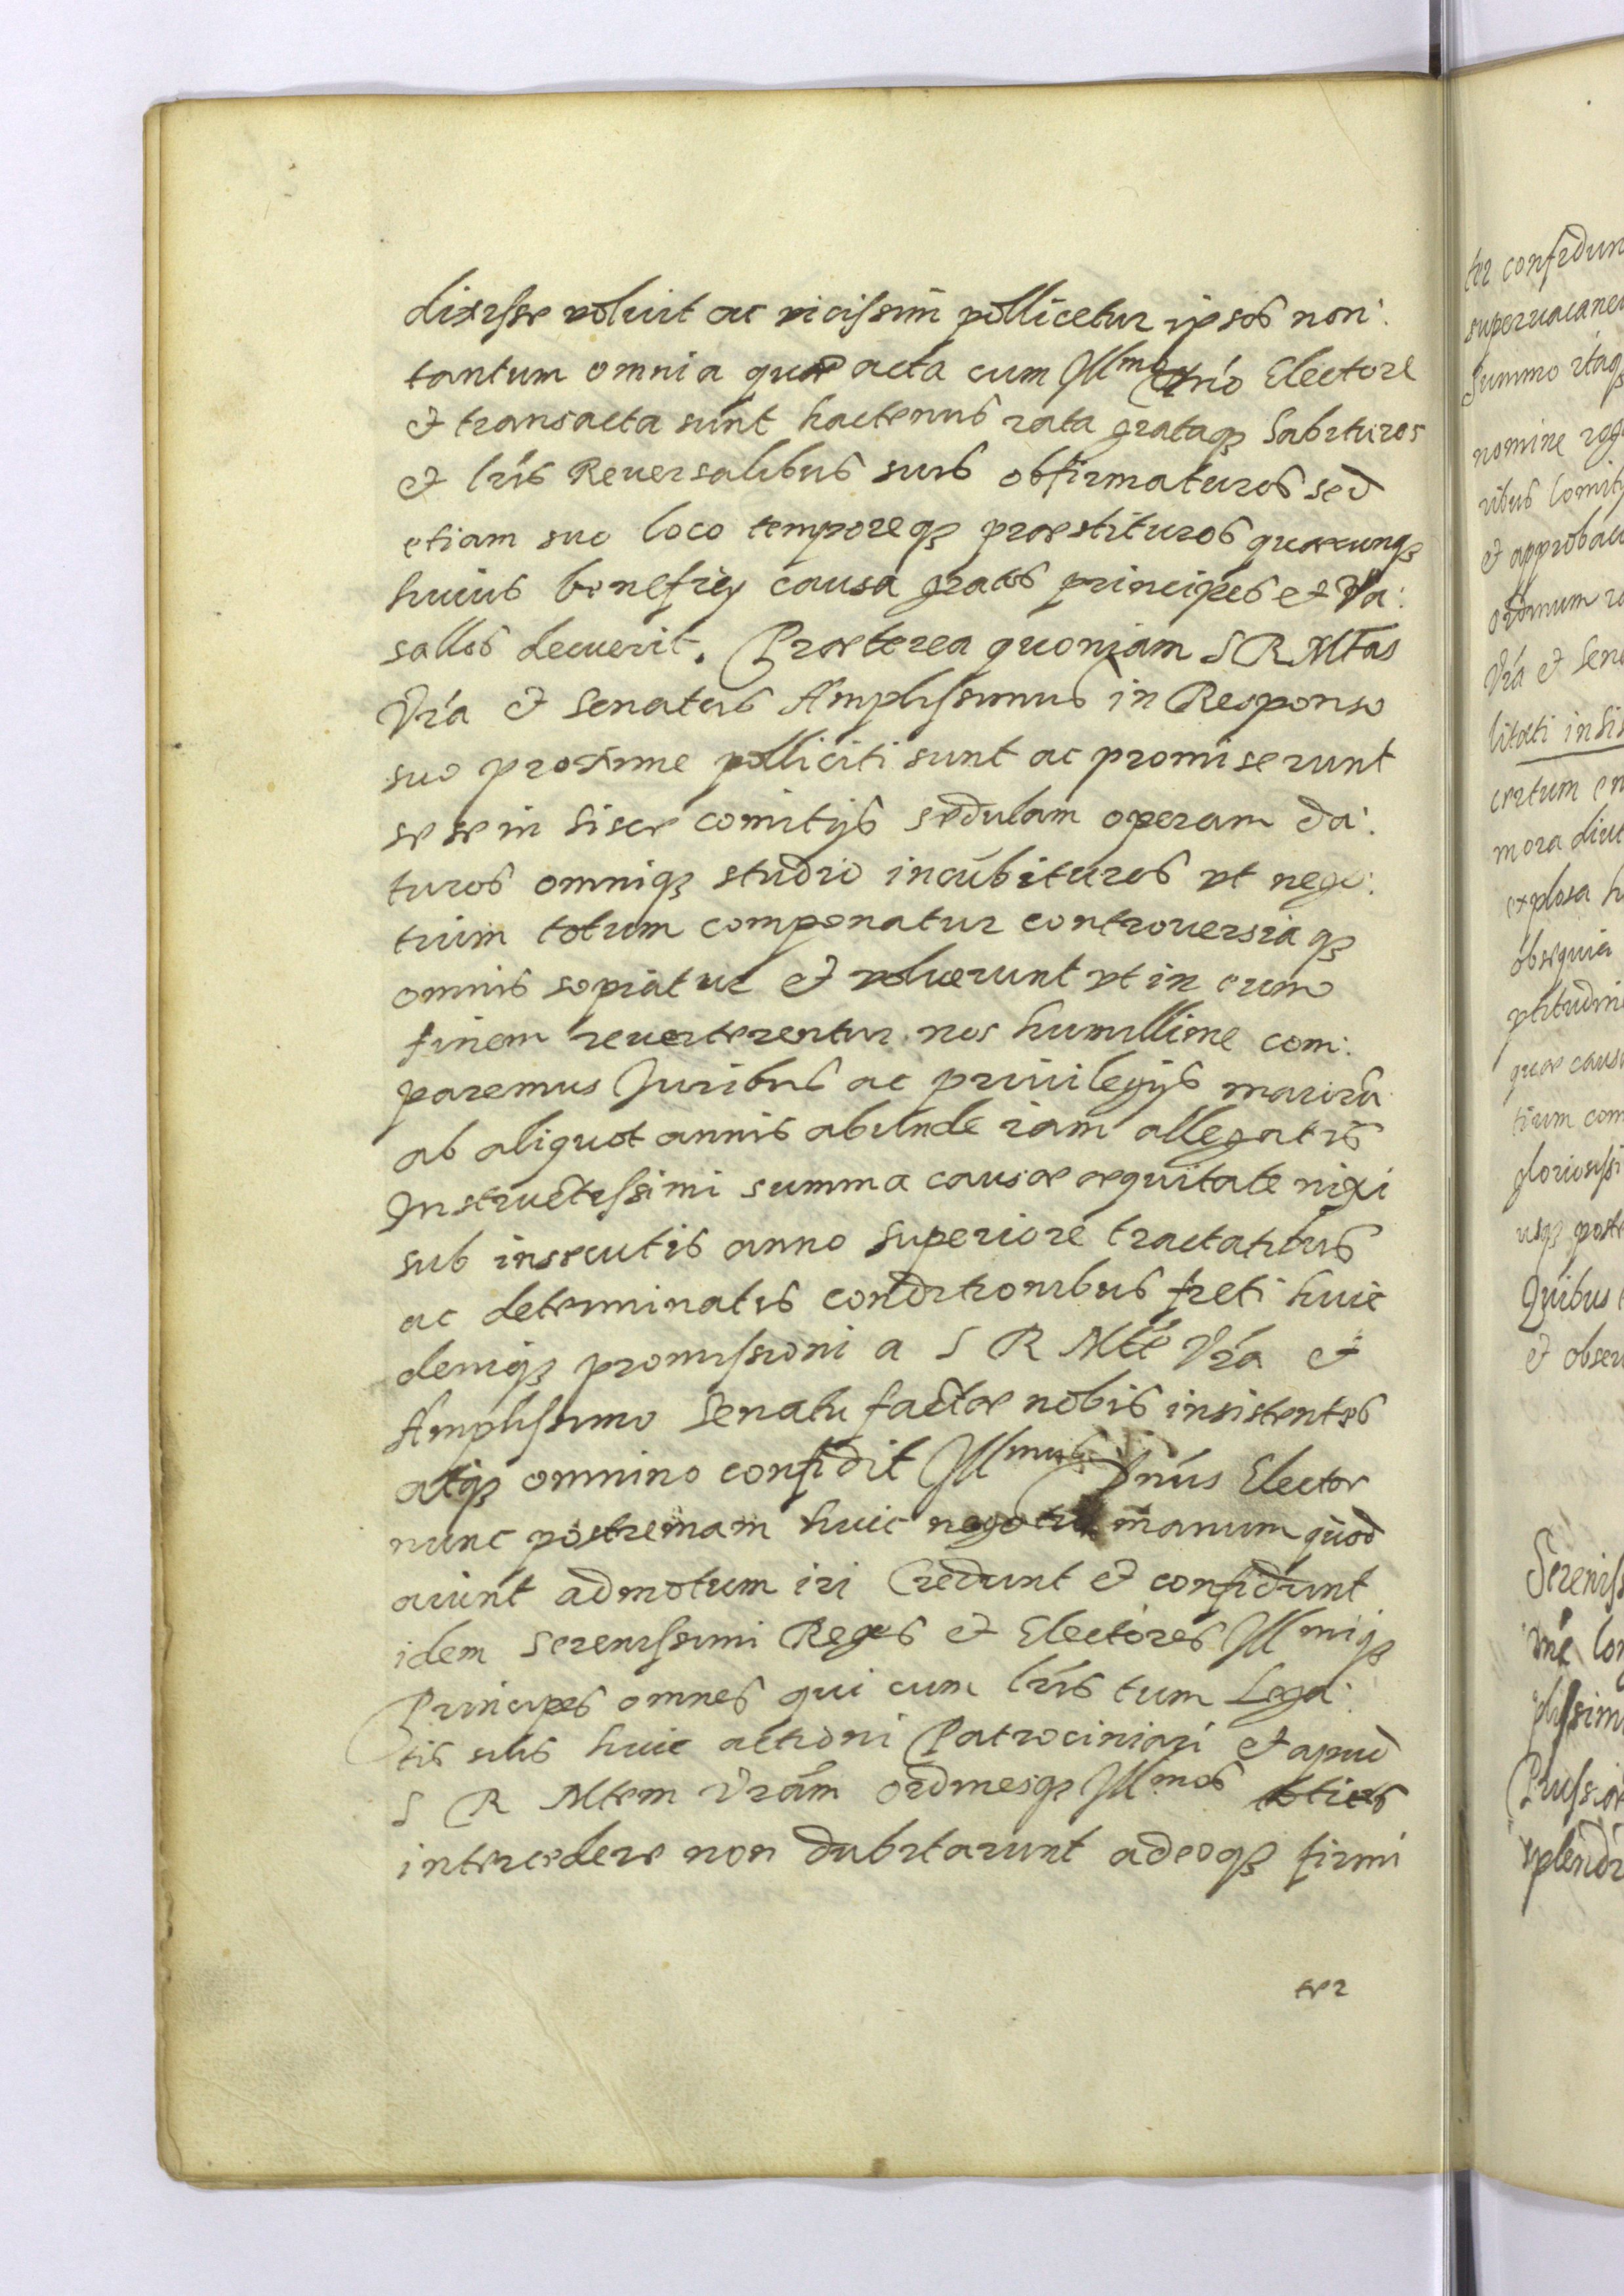 dixisse voluit ac vicissim pollicetur ipsos non:
tantum omnia quae acta cum Illmo Dno Electore
et transacta sunt hactenus rata grataq habituros
et lris Reuersalibus suis obfirmaturos sed
etiam suo loco temporeq praestituros quaecunq
huius beneficij causa gratos principes et Va:
sallos decuerit. Praeterea quoniam S R Mtas
Vra et Senatus Amplissimus in Responso
suo proxime polliciti sunt ac promiserunt
sese in hisce comitijs sedulam operam da:
turos omniq studio incubituros vt nego:
tium totum componatur controuersiaq
omnis sopiatur et voluerunt vt in eum
finem reuerterentur nos humillime com:
paremus Juribus ac priuilegijs maioru
ab aliquot annis abunde iam allegatis
Instructissimi summa causae aequitate nixi
sub insecutis anno superiore tractatibus
ac determinatis conditionibus freti huic
deniq promissioni a S R Mte Vra et
Amplissimo Senatu factae nobis insistentes
atq omnino confidit Illmus Dnus Elector
nunc postremam huic negotio manum quod
aiunt admotum iri Credunt et confidunt
idem Serenissimi Reges et Electores Illmiq
Principes omnes qui cum lris tum Lega:
tis suis huic actioni Patrociniari et apud
S R Mtem Vram ordinesq Illmos toties
intercedere non dubitarunt adeoq firmi
ter
ter confidun
superuacane
Summo itaq
nomine
ribus Comity
et approba
ordinum
Vra et Sena
litati insis
certum en
mora diut
explosa h
obsequia
ptitudine
quae caus
tium com
gloriosissi
usq poste
Quibus
et obser
Sereniss
plissim
Prussiae
splendi